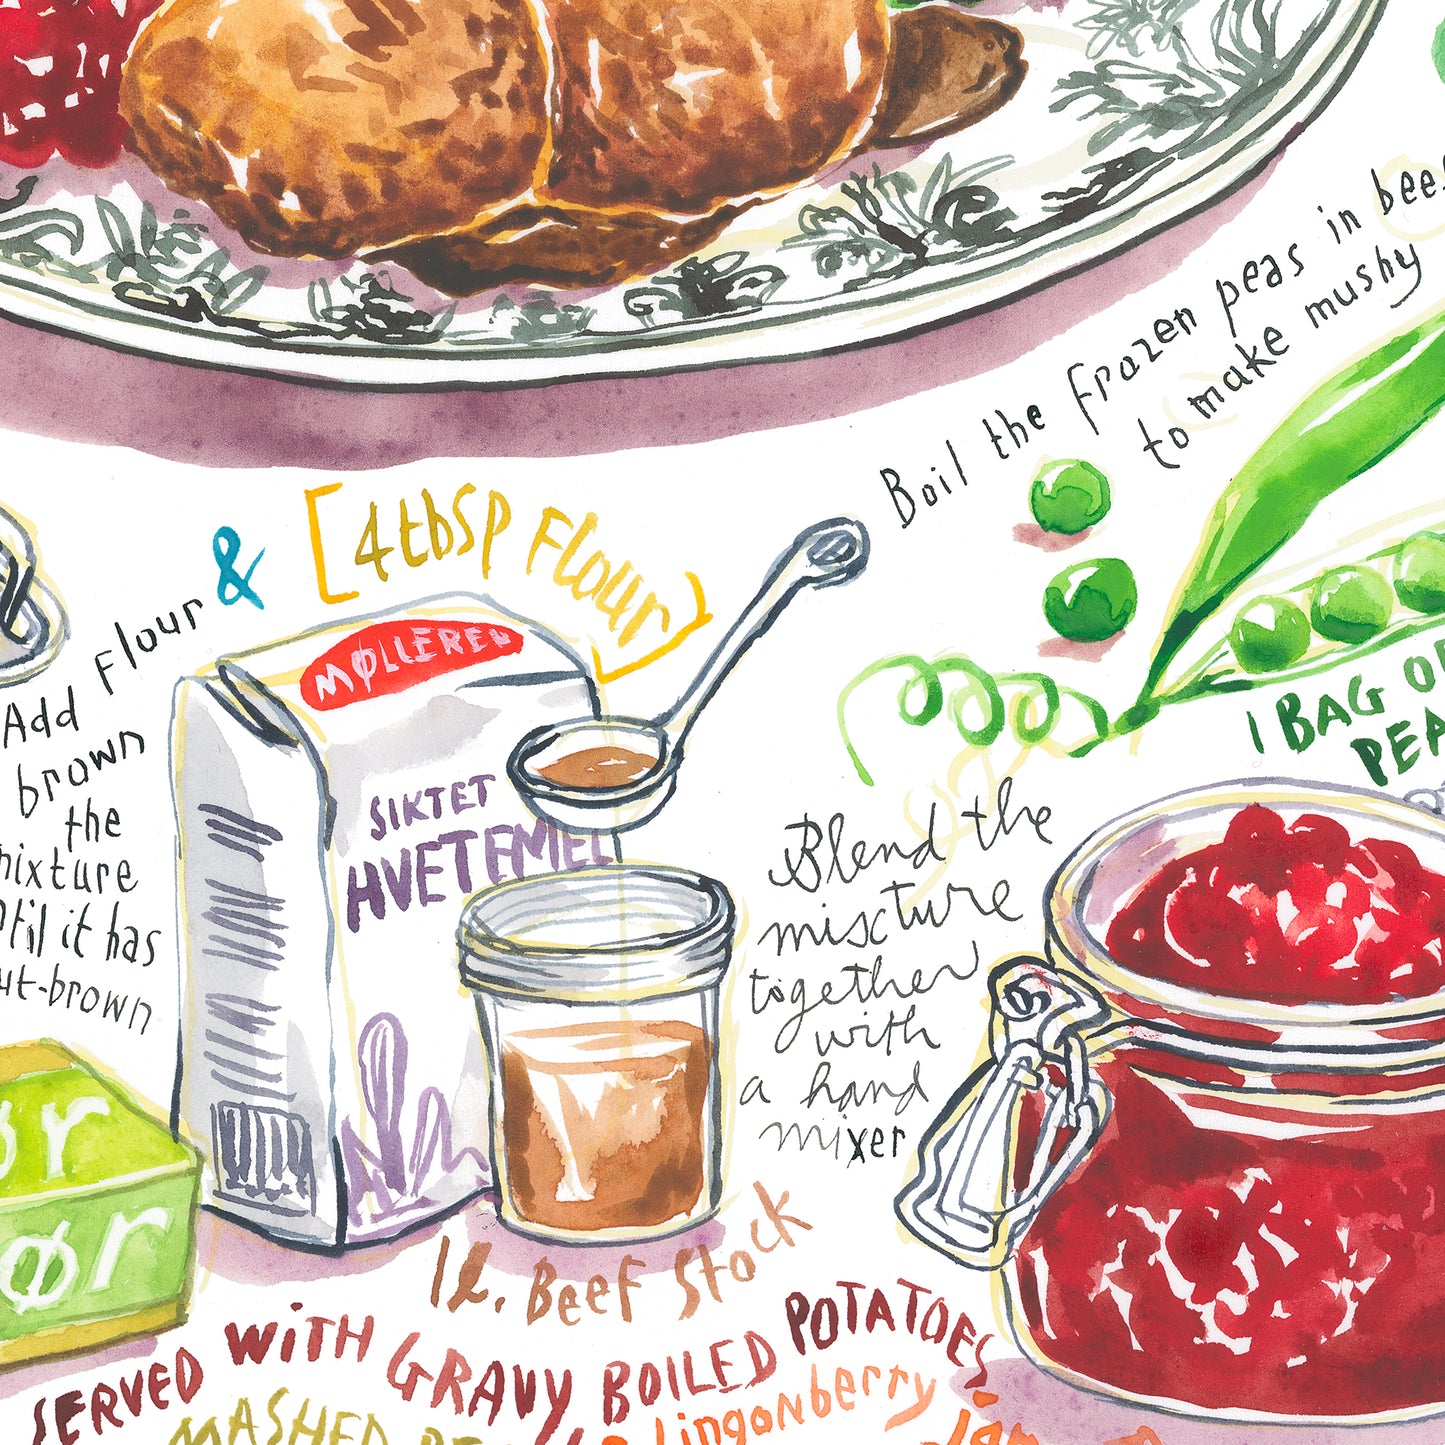 Boil the frozen peas in
to make mushy
& [4 tbsp Flour]
Add Flour
brown
the
mixture
until it has
nut-brown
MØLLEREN
SIKTET
HVETEMEL
1 BAG OF
PEA
Blend the
mixture
together
with
a hand
mixer
ør
ør
1l. Beef Stock
SERVED WITH GRAVY BOILED POTATOES
MASHED
& lingonberry
Jam